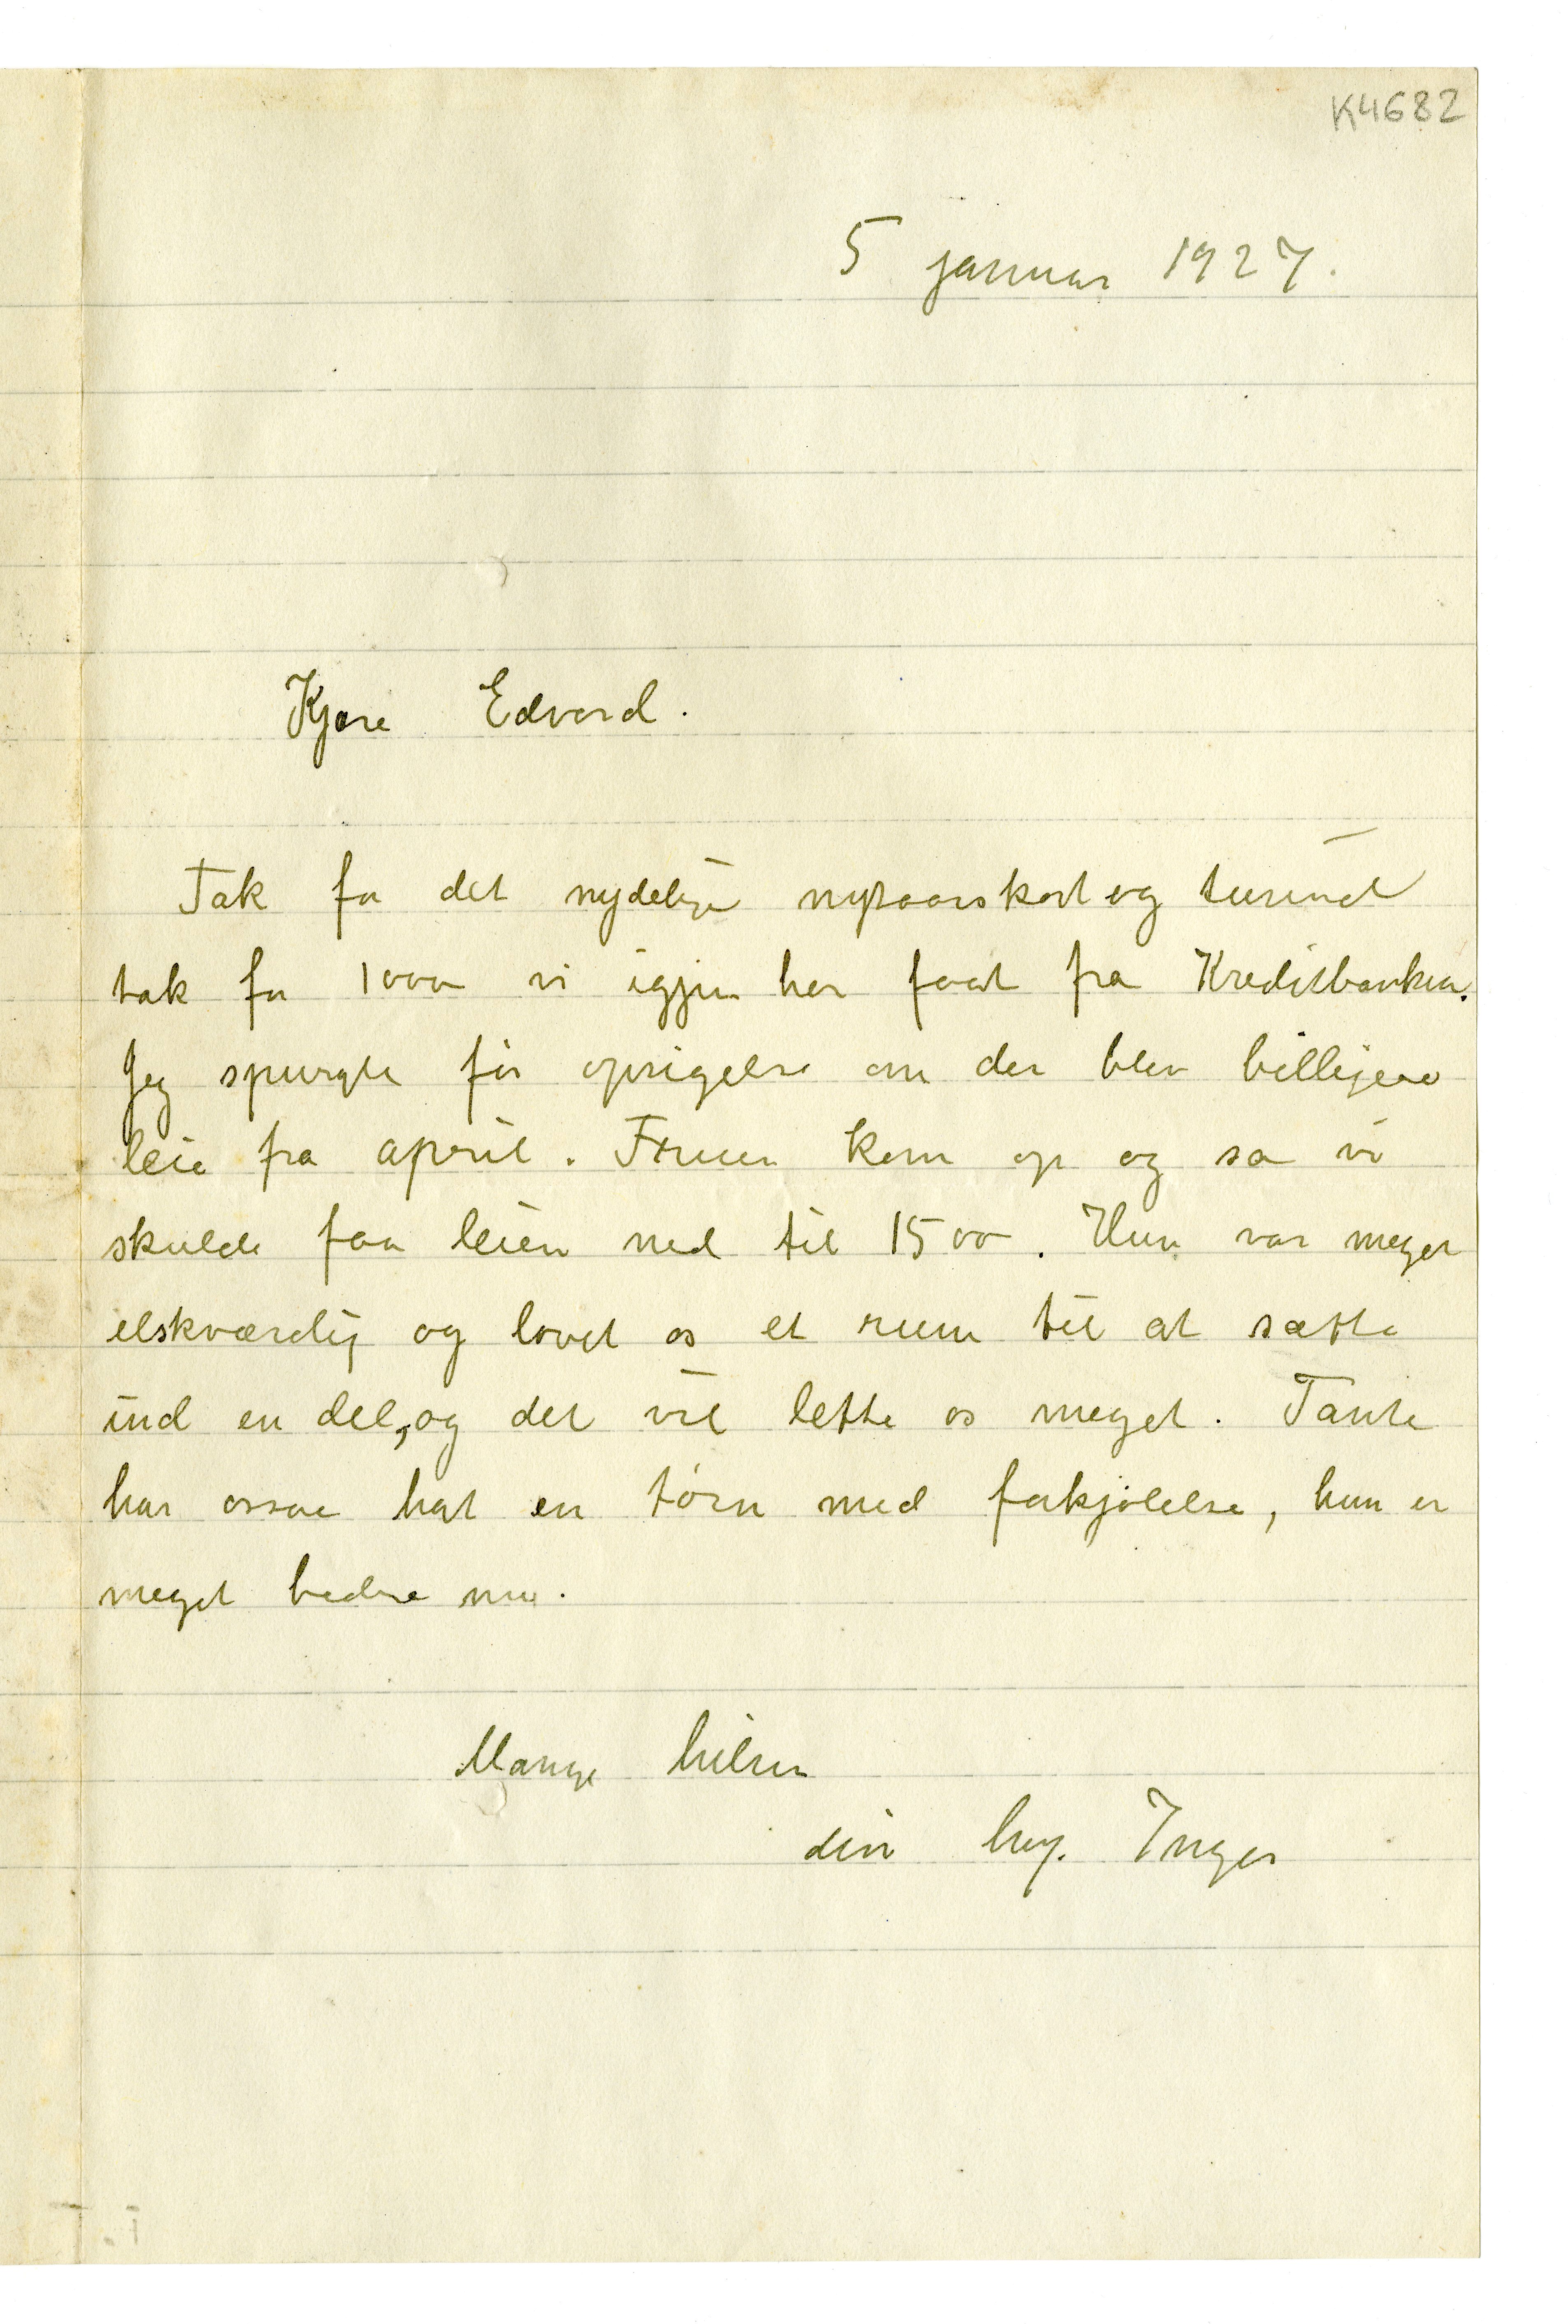 K4682
5 januar 1927.
Kjære Edvard.
Tak for det nydelige nytaarskort og tusind
tak for 1000 vi igjen har faat fra Kreditbanken.
Jeg spurgte før opsigelse om der blev billigere
leie fra april. Fruen kom op og sa vi
skulde faa leien ned til 1500. Hun var meget
elskværdig og lovet os et rum til at sætte
ind en del, og det vil lette os meget. Tante
har ossaa hat en tørn med forkjølelse, hun er
meget bedre nu.
Mange hilsen
din heng. Inger